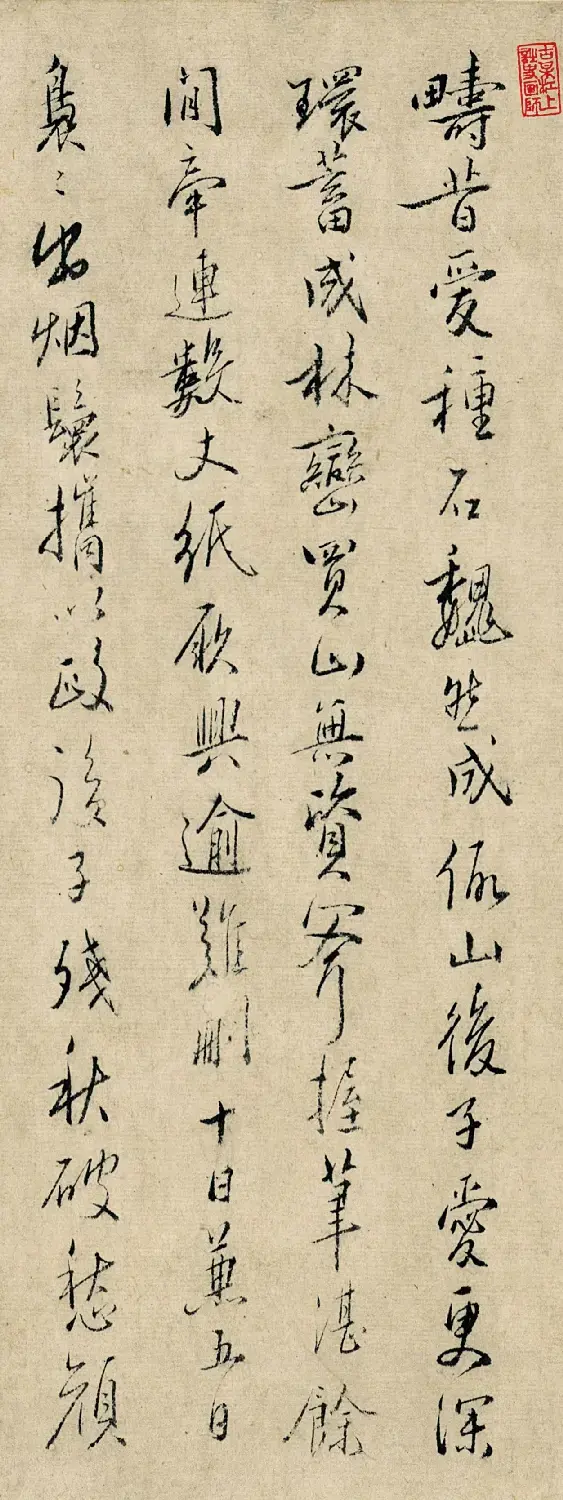 疇昔愛種石巍然成假山後子愛更深
環蓄成林巒買山無資斧握筆湛餘
閒牽連數丈紙欣興逾難刪十日兼五日
裊〻出烟鬟攜以政後子殘秋破愁顏